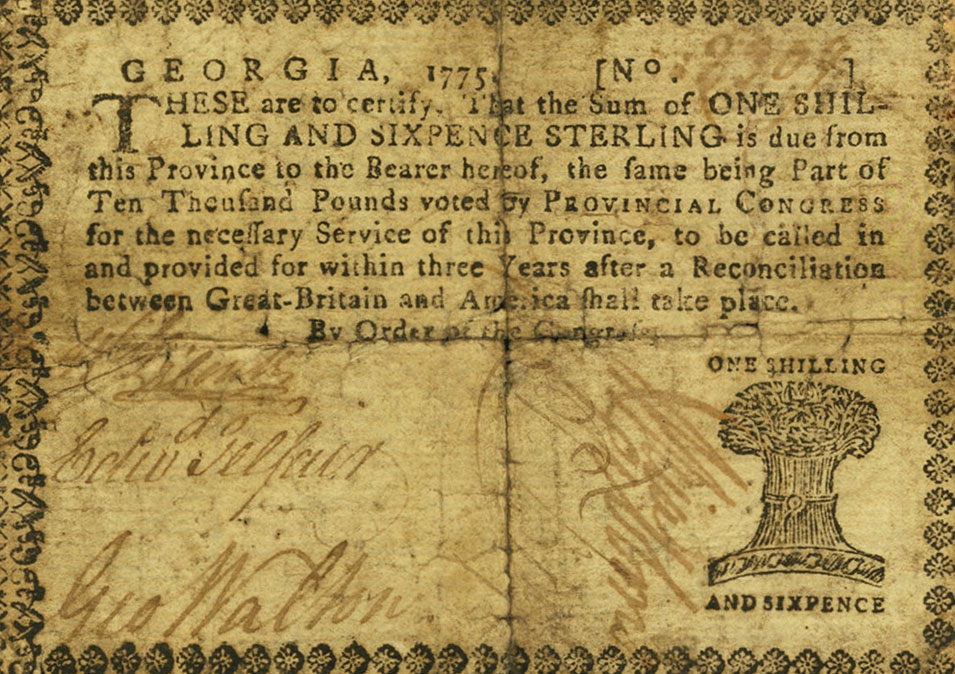 GEORGIA, 1775. [No. ]
THESE are to certify, That the Sum of ONE SHIL-
LING AND SIXPENCE STERLING is due from
this Province to the Bearer hereof, the ſame being Part of
Ten Thouſand Pounds voted by PROVINCIAL CONGRESS
for the neceſſary Service of this Province, to be called in
and provided for within three Years after a Reconciliation
between Great-Britain and America ſhall take place.
By Order of the Congreſs,
ONE SHILLING
Edw Telfair
Geo Walton
AND SIXPENCE